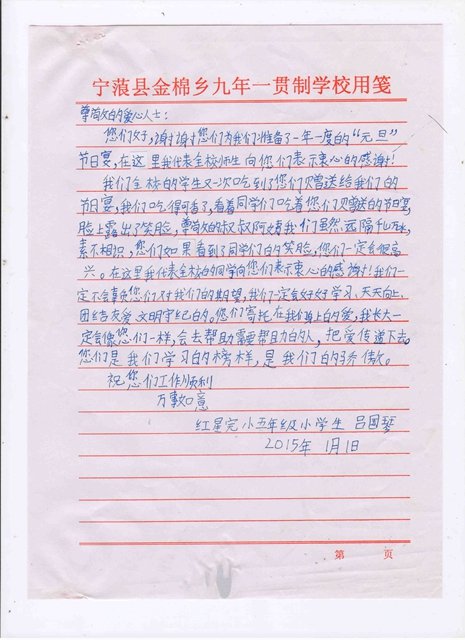 宁蒗县金棉乡九年一贯制学校用笺
尊敬的爱心人士:
您们好,谢谢您们为我们准备了一年一度的“元旦”
节日宴,在这里我代表全校师生向你们表示衷心的感谢!
我们全校的学生又一次吃到了您们赠送给我们的
节日宴,我们吃得可香了,看着同学们吃着您们赠送的节日宴,
脸上露出了笑脸,尊敬的叔叔阿姨我们虽然远隔千山万水,
素不相识,您们如果看到了同学们的笑脸,您们一定会很高
兴。在这里我代表全校的同学向您们表示衷心的感谢!我们一
定不会辜负您们对我们的期望,我们一定会好好学习、天天向上、
团结友爱、文明守纪的。您们寄托在我们身上的爱,我长大一
定会像您们一样,会去帮助需要帮助的人,把爱传递下去。
您们是我们学习的榜样,是我们的骄傲。
祝您们工作顺利
万事如意
红星完小五年级小学生 吕国琴
2015年 1月1日
第 页